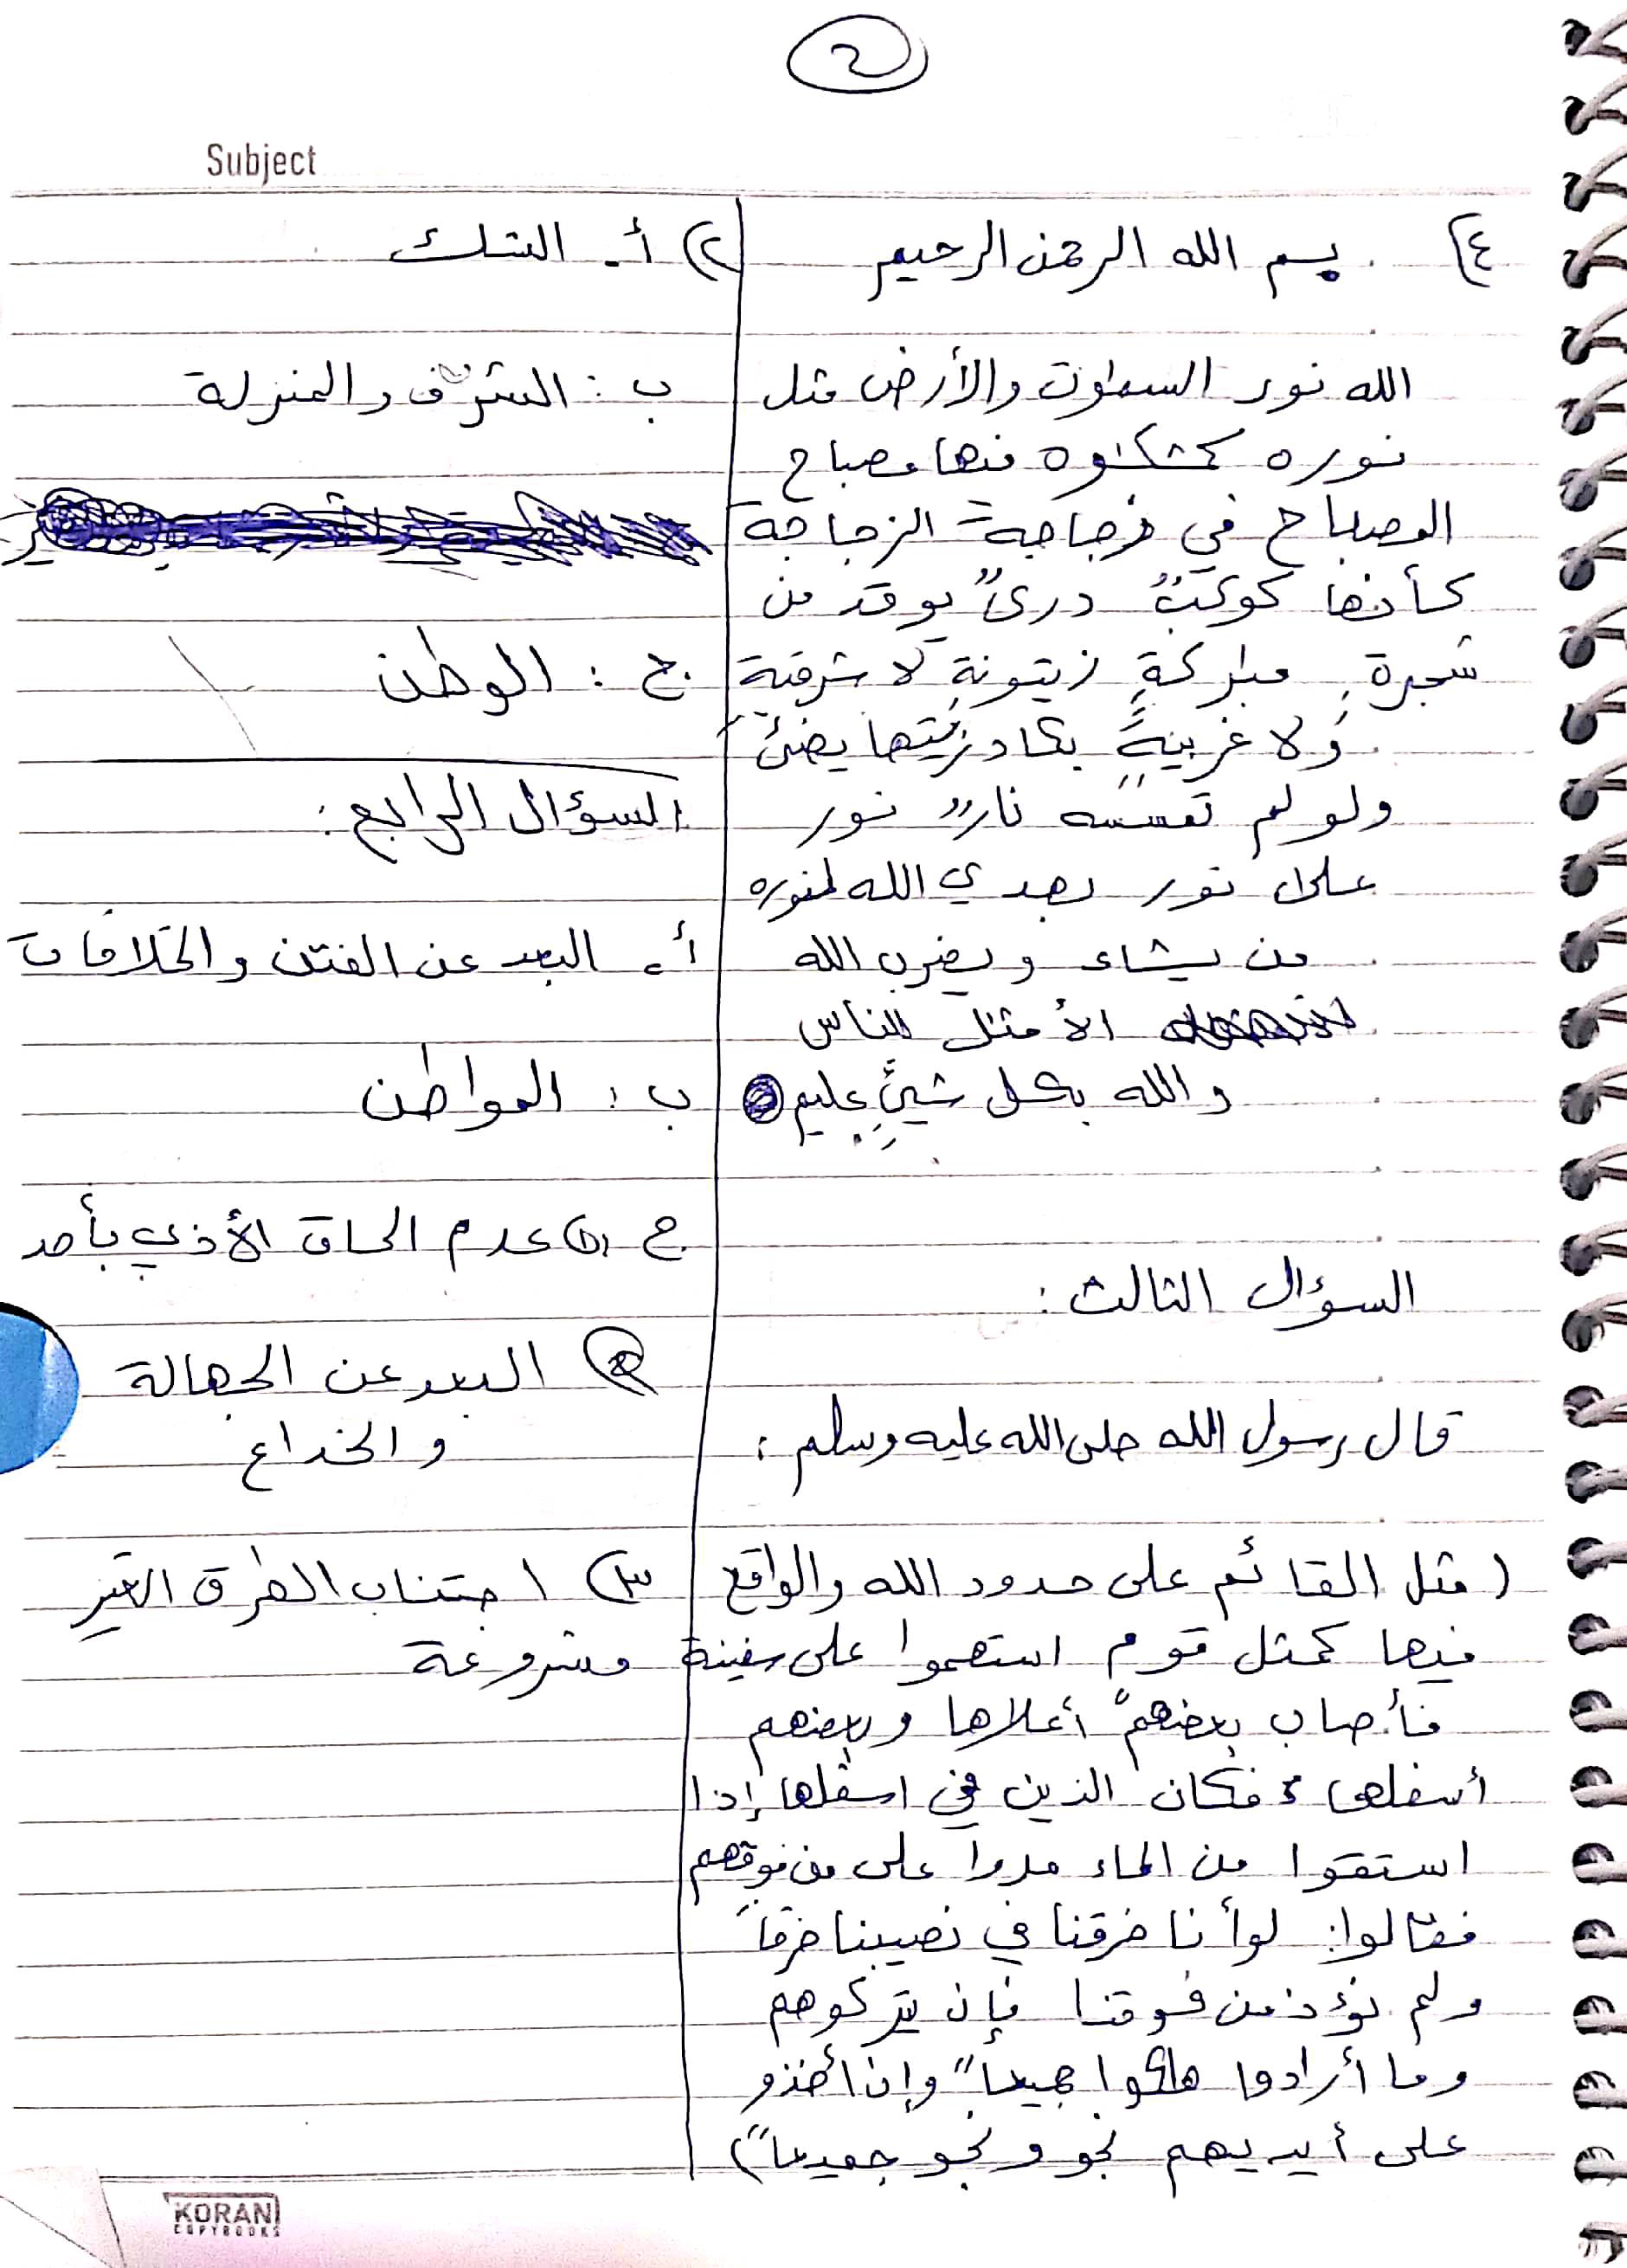 ٢
Subject
٤)
بسم الله الرحمن الرحيم
الله نور السموت والأرض مثل
نوره كمشكوة فيها مصباح
المصباح في زجاجة الزجاجة
كأنها كوكبٌ درىٌ يوقد من
شجرةٍ مباركةٍ زيتونةٍ لا شرقية
ولا غربيةٍ يكاد زيتها يضئ
ولو لم تمسسه نارٌ نور
على نور يهدي الله لنوره
من يشاء ويضرب الله
الأمثل للناس
والله بكل شئٍ عليم
السؤال الثالث :
قال رسول الله صلى الله عليه وسلم :
( مثل القائم على حدود الله والواقع
فيها كمثل قوم استهموا على سفينة
فأصاب بعضهم أعلاها وبعضهم
أسفلها ، فكان الذين في اسفلها إذا
استقوا من الماء مروا على من فوقهم
فقالوا: لو أنا خرقنا في نصيبنا خرقاً
ولم نؤذ من فوقنا فإن يتركوهم
وما أرادوا هلكوا جميعاً وإن أخذو
على أيديهم نجو ونجو جميعاً )
٢) أ - الشك
ب : الشرف والمنزلة
ج : الوطن
السؤال الرابع :
أ - البعد عن الفتن والخلافات
ب : المواطن
ج ١) عدم الحاق الأذي بأحد
٢) البعد عن الجهالة
والخداع
٣) اجتناب الطرق الغير
مشروعة
KORAN
COPYBOOKS